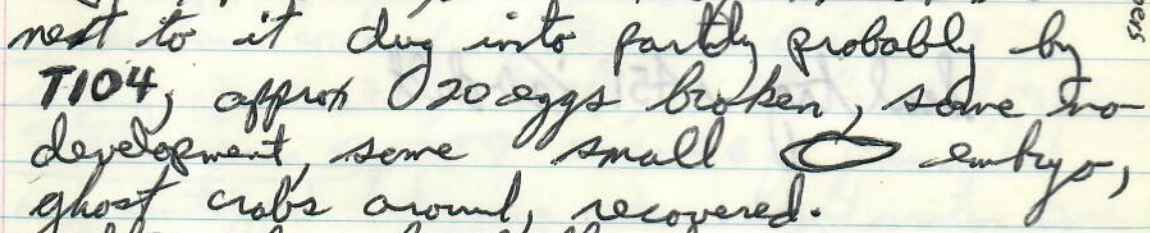 next to it dug into partly probably by
T104, approx 20 eggs broken, some no
development, some small embryo,
ghost crabs around, recovered.